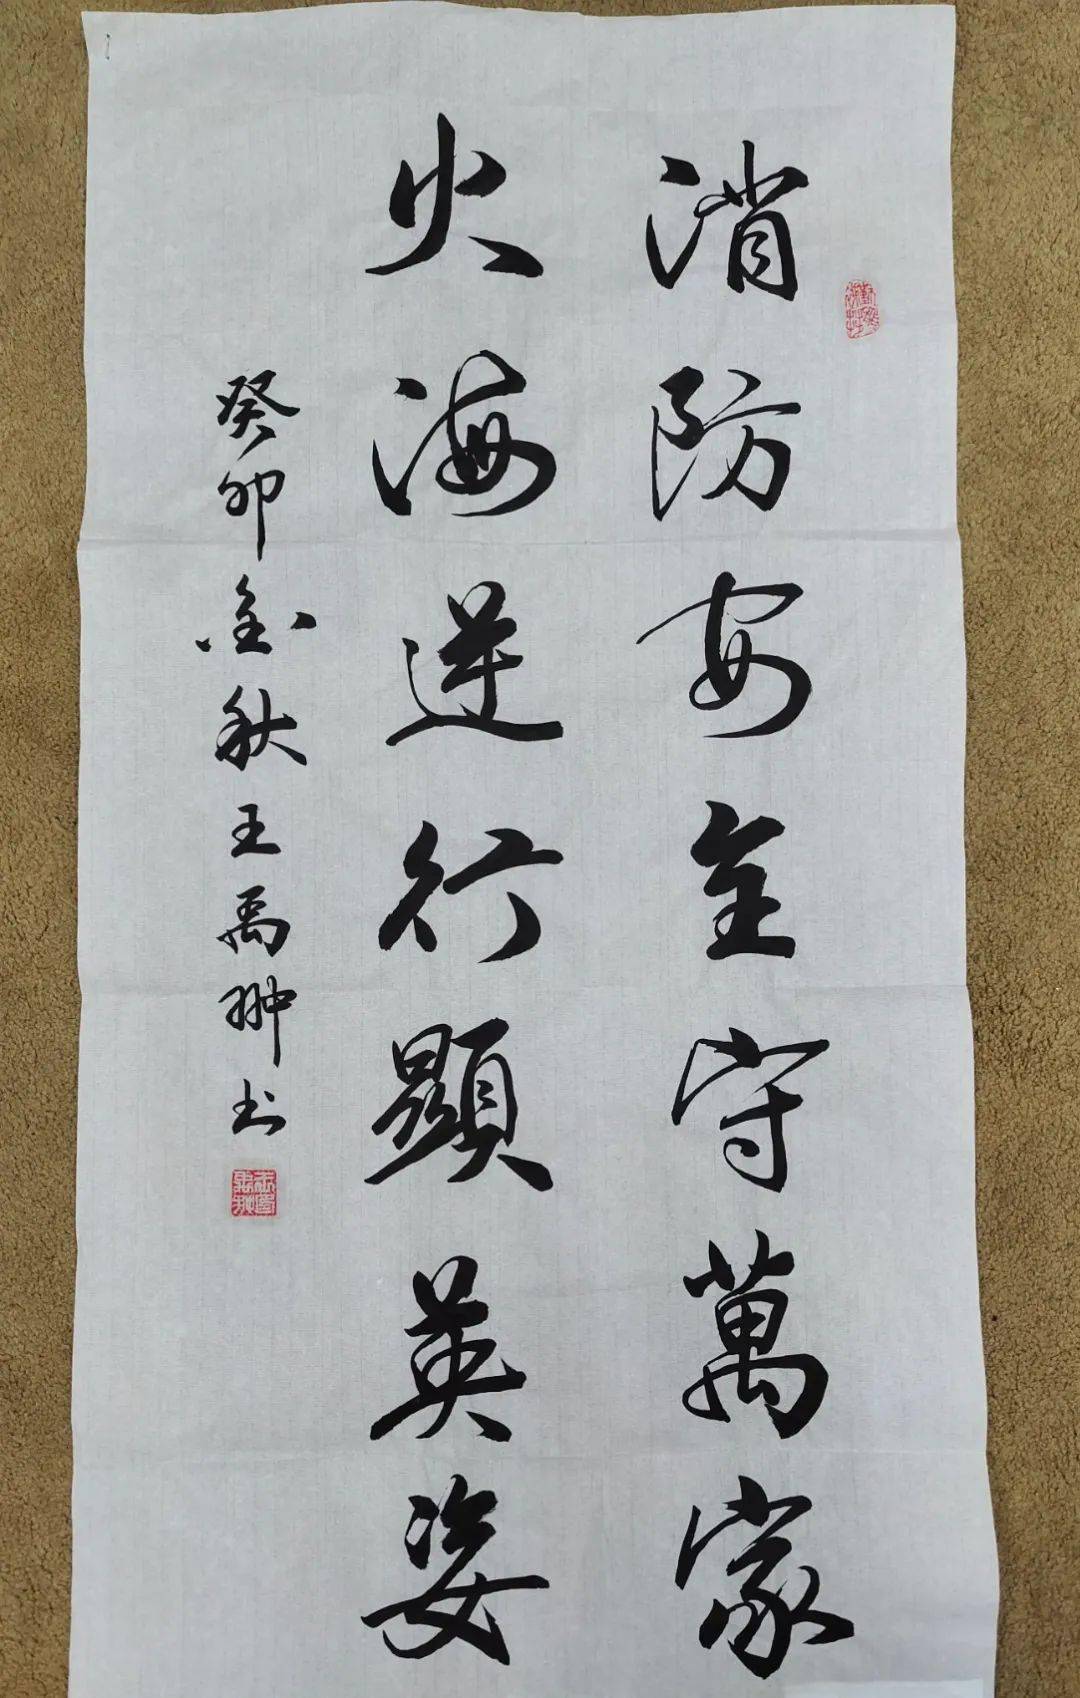 消防安全守萬家
火海逆行顯英姿
癸卯金秋王禹翀书